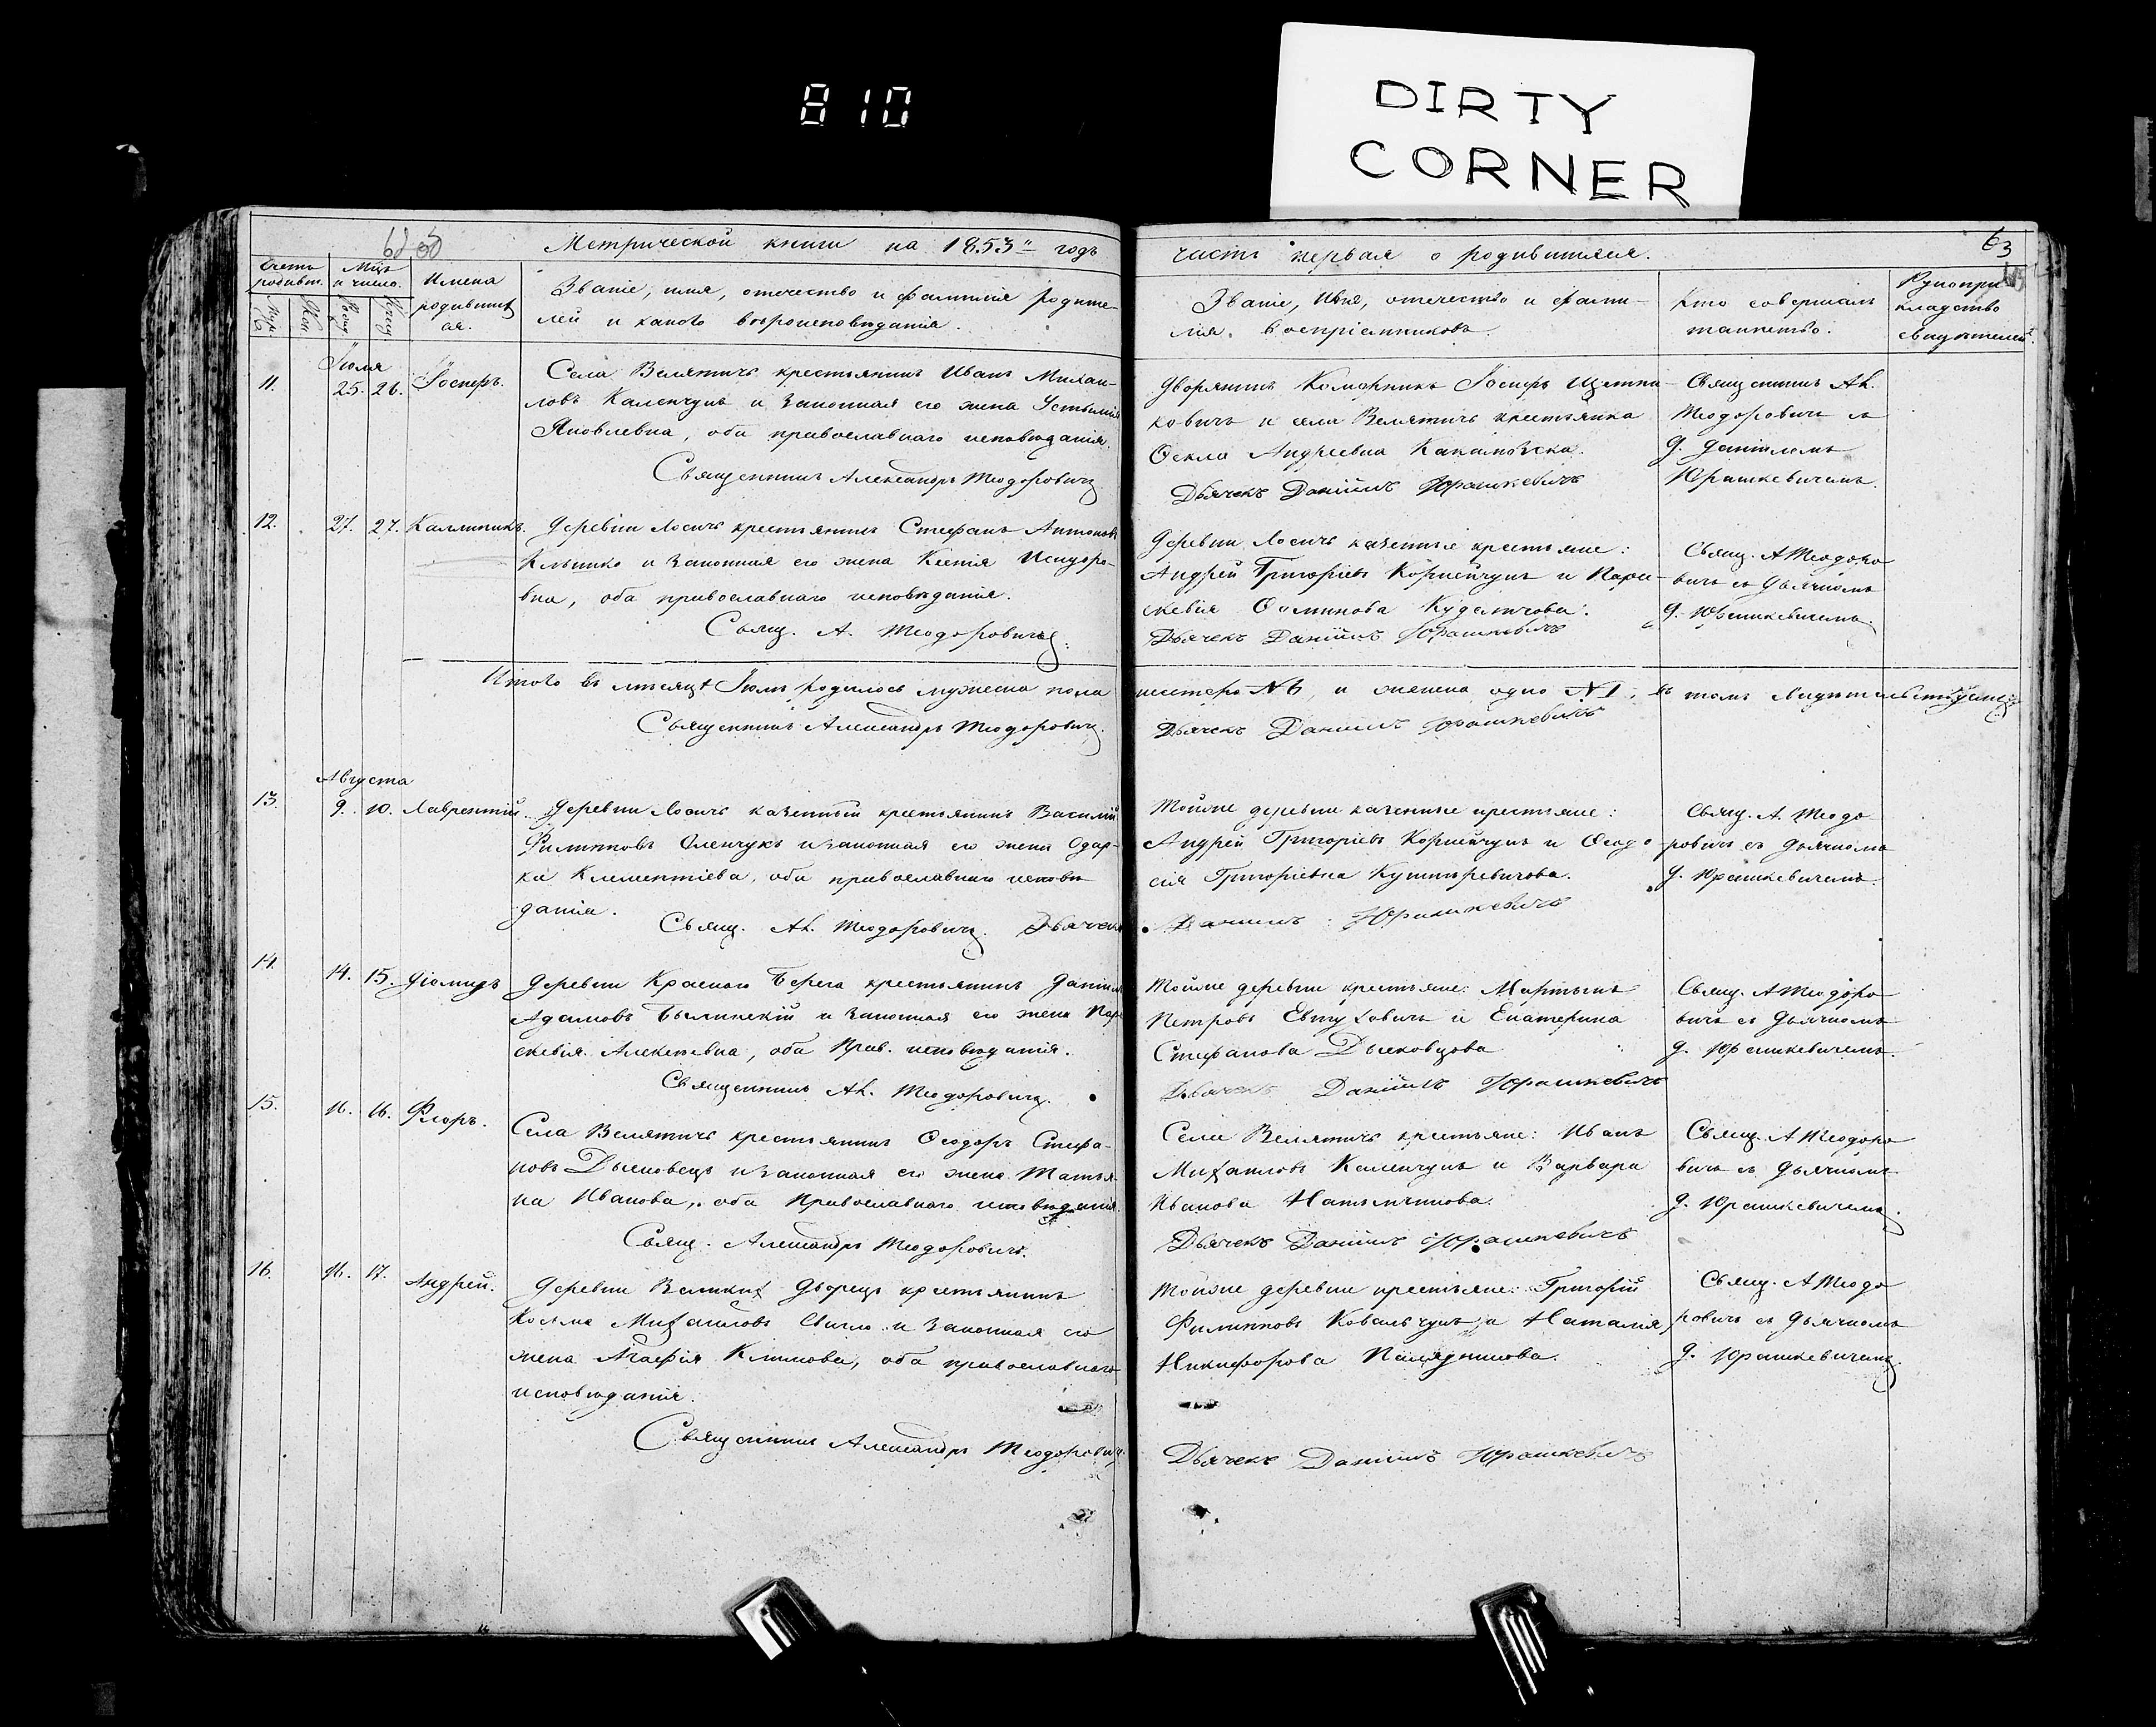 810
DIRTY
CORNER
Метрической книги на 1853 годъ
Счетъ родивш.
Мцъ и число.
Имена родившихся.
Званіе, имя, отечество и фамилія родите-
лей и какого вѣроисповѣданія.
Іюля
11. 25. 26. Іосифъ.
Села Велятичъ крестьянинъ Иванъ Михаи-
ловъ Каленчукъ и законная его жена
Яковлевна, оба православнаго исповѣданія.
Священникъ Александръ Теодоровичъ
12. 27. 27. Каллиникъ.
Деревни Лосичъ крестьянинъ Стефанъ Антоновъ
Климко и законная его жена Ксенія Исидоро-
вна, оба православнаго исповѣданія.
Свящ. А. Теодоровичъ
Итого въ мѣсяцѣ Іюлѣ родилось мужеска пола
Священникъ Александръ Теодоровичъ.
Августа
13. 9. 10. Лаврентій.
Деревни Лосичъ казенный крестьянинъ Василій
Филипповъ Оленчукъ и законная его жена Одар-
ка Климентіева, оба православнаго исповѣ
данія.
Свящ. Ал. Теодоровичъ. Дьячекъ
14. 14. 15. Діомидъ
Деревни Краснаго Берега крестьянинъ Даніилъ
Адамовъ Былинскій и законная его жена Пара
скевія Алексѣевна, оба Прав. исповѣданія.
Священникъ Ал. Теодоровичъ.
15. 16. 16. Флоръ.
Села Велятичъ крестьянинъ Ѳеодоръ Стефа-
новъ Дысковецъ и законная его жена Татья-
на Иванова, оба Православнаго исповѣданія.
Свящ. Александръ Теодоровичъ.
16. 16. 17. Андрей.
Деревни Великихъ Дворецъ крестьянинъ
Косьма Михаиловъ и законная его
жена Агафія Климова, оба православнаго
исповѣданія.
Священникъ Александръ Теодоровичъ
63
часть первая о родившихся.
Званіе, имя, отечество и фами-
лія воспріемниковъ.
Кто совершалъ
таинство.
Рукопри
кладство
свидѣтелей.
Дворянинъ Коморникъ Іосифъ
ковичъ и села Велятичъ крестьянка
Ѳекла Андреевна
Дьячекъ Даніилъ Юрашкевичъ
Священникъ Ал.
Теодоровичъ съ
д. Даніиломъ
Юрашкевичемъ.
Деревни Лосичъ казенные крестьяне:
Андрей Григоріевъ Корнейчукъ и Пара-
скевія
Дьячекъ Даніилъ Юрашкевичъ
Свящ. А Теодоро
вичъ съ Дьячкомъ
Д. Юрашкевичемъ.
шестеро №6, и женска одно №1, въ томъ
Дьячекъ Даніилъ Юрашкевичъ
Тойже деревни казенные крестьяне:
Андрей Григоріевъ Корнейчукъ и Ѳеодо
сія Григоріевна
Даніилъ Юрашкевичъ
Свящ. А. Теодо
ровичъ съ Дьячкомъ
Д. Юрашкевичемъ.
Тойже деревни крестьяне: Мартынъ
Петровъ Евтуховичъ и Екатерина
Стефанова Дысковцова
Дьячекъ Даніилъ Юрашкевичъ
Свящ. А Теодоро
вичъ съ Дьячкомъ
Д. Юрашкевичемъ.
Села Велятичъ крестьяне: Иванъ
Михаиловъ Каленчукъ и Варвара
Иванова
Дьячекъ Даніилъ Юрашкевичъ
Свящ. А Теодоро
вичъ съ Дьячкомъ
Д. Юрашкевичемъ.
Тойже деревни крестьяне: Григорій
Филипповъ Ковальчукъ и Наталія
Никифорова
Дьячекъ Даніилъ Юрашкевичъ
Свящ. А Теодо
ровичъ съ Дьячкомъ
Д. Юрашкевичемъ.